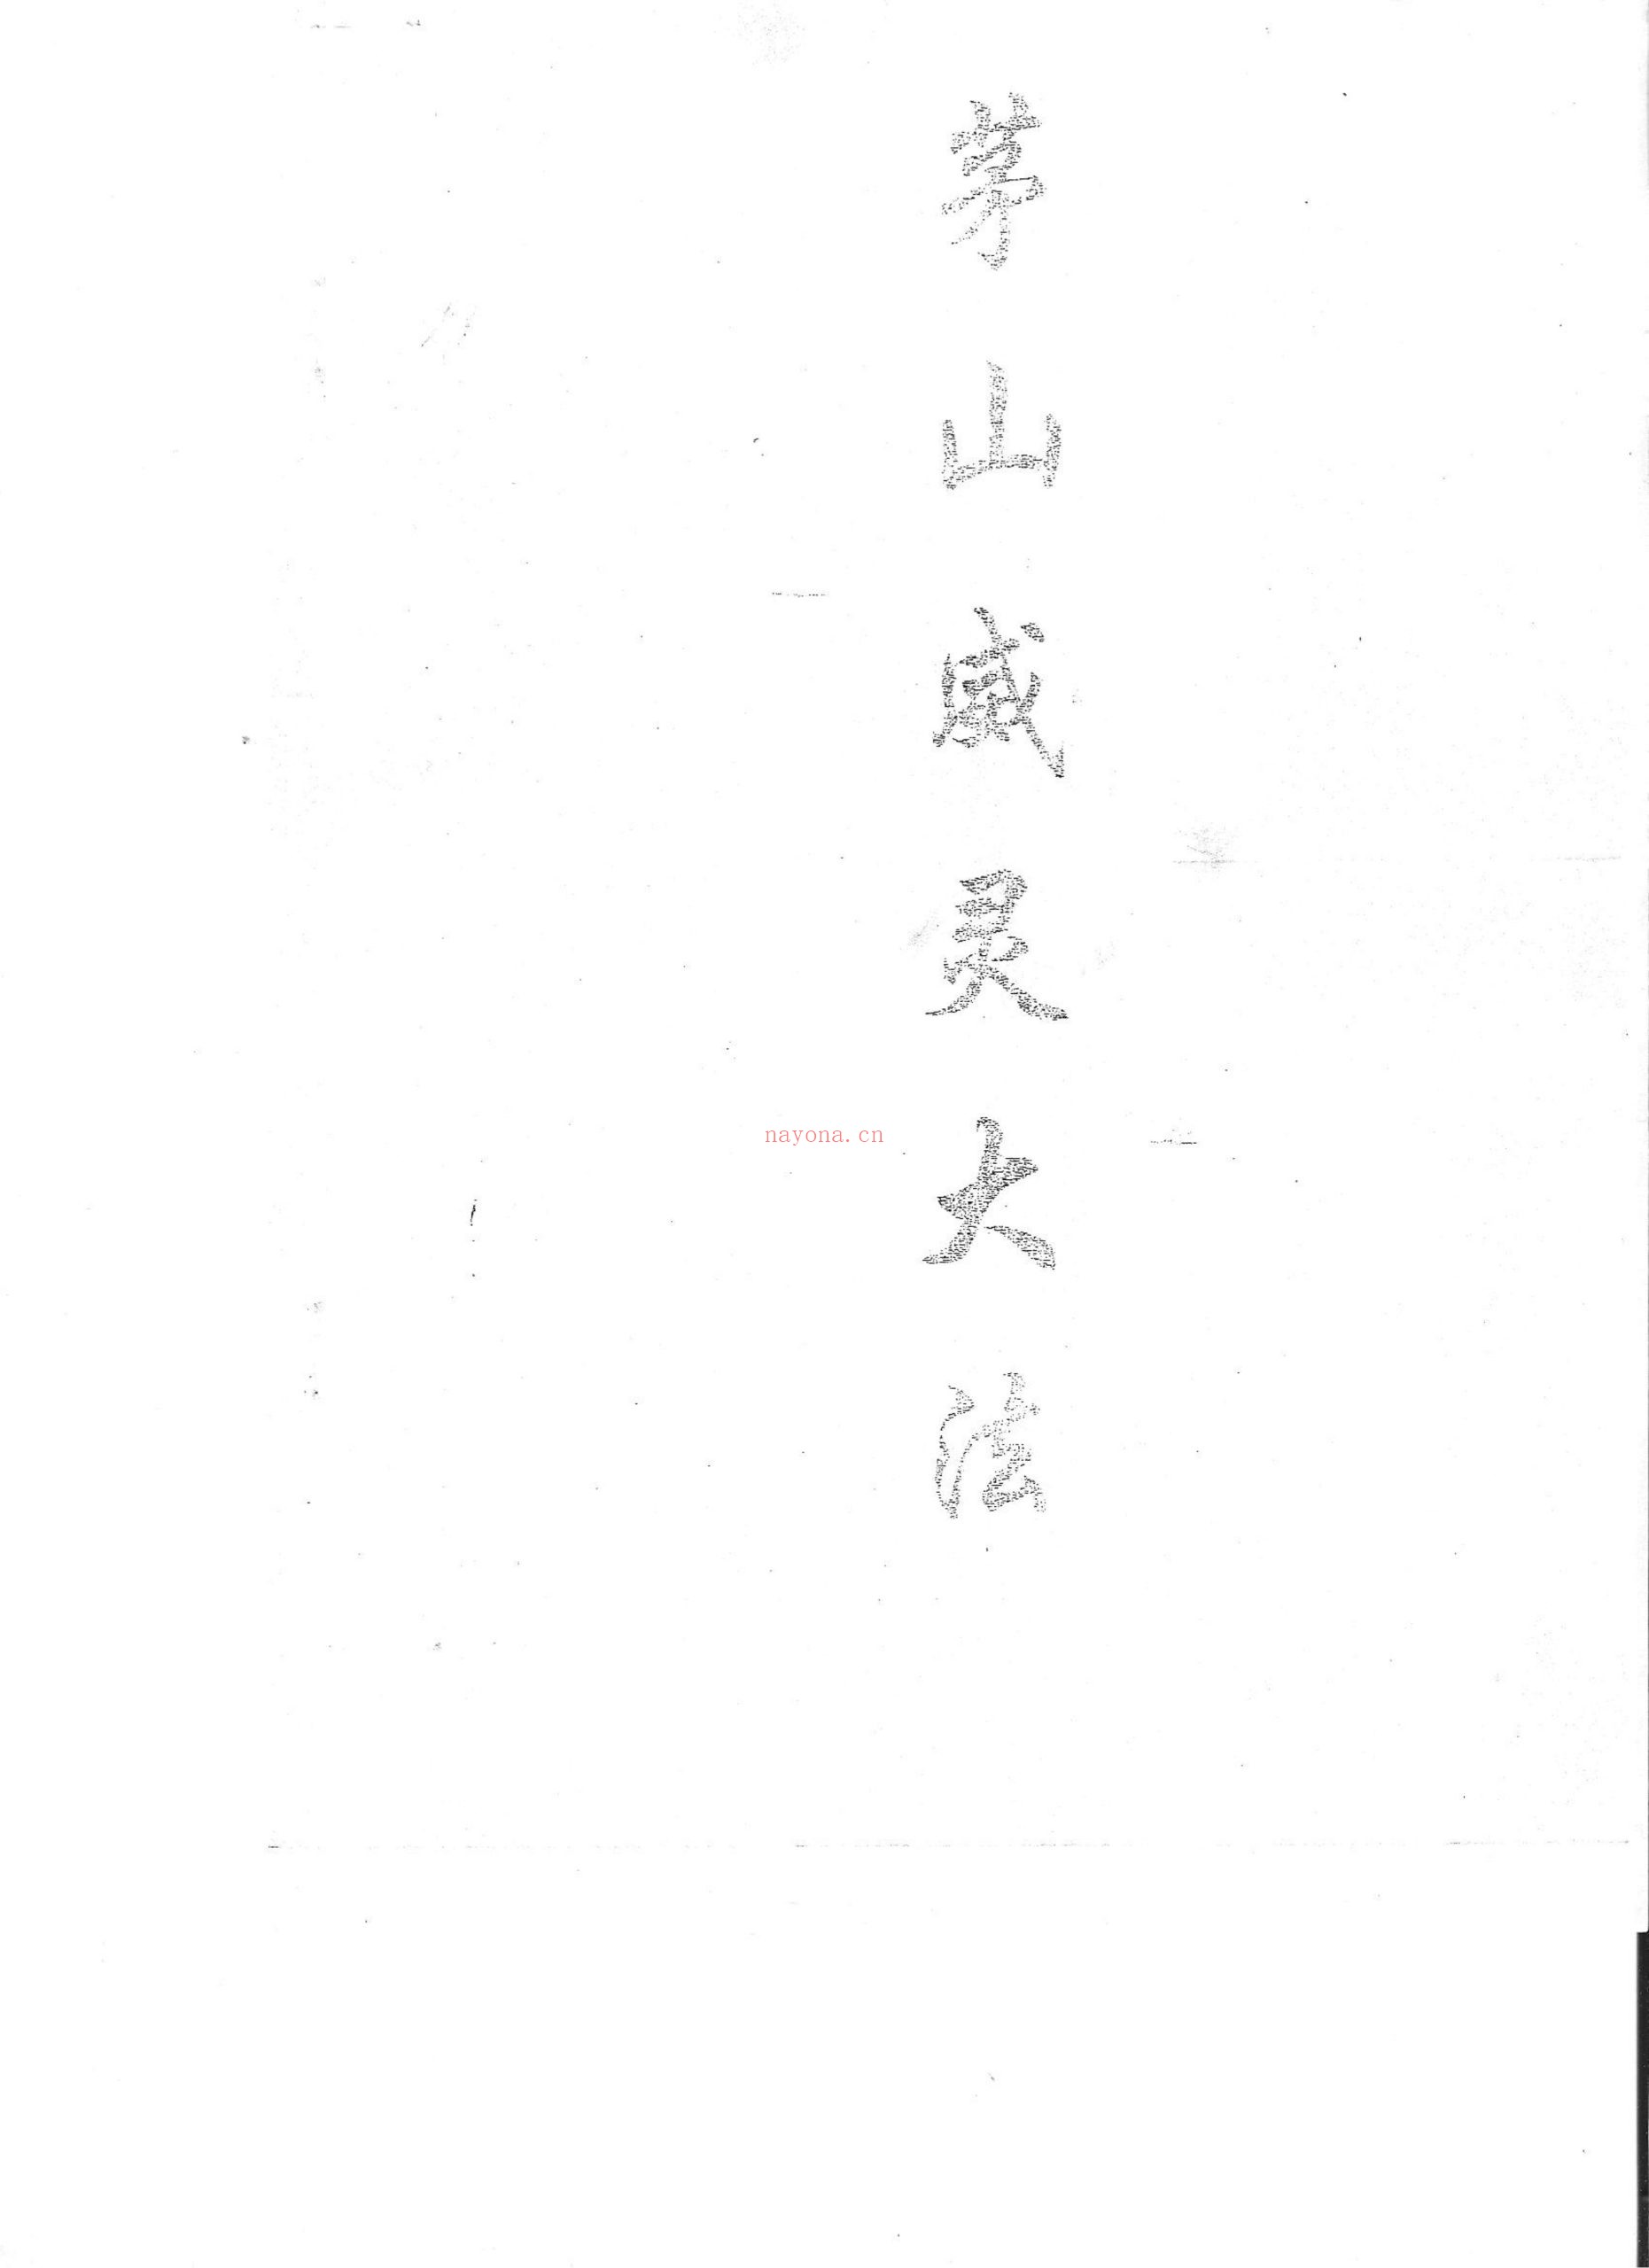 茅山威灵大法
nayona.cn